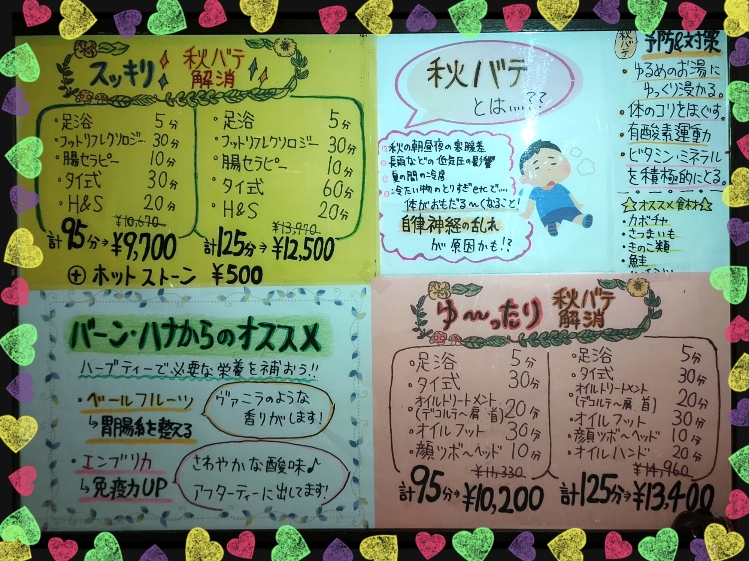 スッキリ 秋バテ解消
・足浴 5分
・フットリフレクソロジー 30分
・腸セラピー 10分
・タイ式 30分
・H&S 20分
¥10,670
計95分→¥9,700
・足浴 5分
・フットリフレクソロジー 30分
・腸セラピー 10分
・タイ式 60分
・H&S 20分
¥13,970
計125分→¥12,500
⊕ホットストーン ¥500
秋バテ
とは…??
秋の朝昼夜の寒暖差
長雨などの低気圧の影響
夏の間の冷房
冷たい物のとりすぎetcで…
体がおもだる〜くなること!
自律神経の乱れ
が原因かも!?
秋バテ 予防&対策
・ゆるめのお湯に
ゆっくり浸かる。
・体のコリをほぐす。
・有酸素運動
・ビタミン・ミネラル
を積極的にとる。
☆オススメ食材☆
・カボチャ
・さつまいも
・きのこ類
・鮭
バーン・ハナからのオススメ
ハーブティーで必要な栄養を補おう!!
・ベールフルーツ
↳胃腸系を整える
ヴァニラのような
香りがします!
・エンブリカ
↳免疫力UP
さわやかな酸味♪
アフターティーに出してます!
ゆ〜ったり 秋バテ解消
・足浴 5分
・タイ式 30分
・オイルトリートメント
(デコルテ〜肩、首) 20分
・オイルフット 30分
・顔ツボ〜ヘッド 10分
¥11,330
計95分→¥10,200
・足浴 5分
・タイ式 30分
・オイルトリートメント
(デコルテ〜肩、首) 20分
・オイルフット 30分
・顔ツボ〜ヘッド 10分
・オイルハンド 20分
¥14,960
計125分→¥13,400